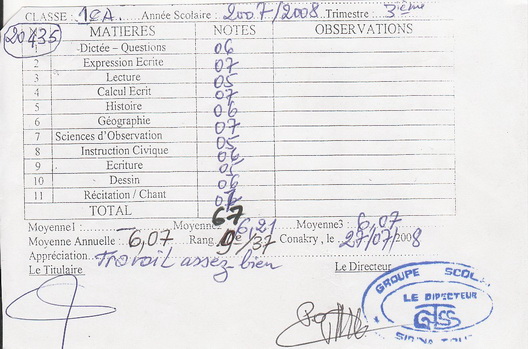 CLASSE : 1eA. Année Scolaire : 2007/2008 Trimestre : 3ième
20435 MATIERES NOTES OBSERVATIONS
1 Dictée – Questions 06
2 Expression Ecrite 07
3 Lecture 05
4 Calcul Ecrit 07
5 Histoire 06
6 Géographie 07
7 Sciences d'Observation 05
8 Instruction Civique 06
9 Ecriture 05
10 Dessin 06
11 Récitation / Chant
TOTAL 67
Moyenne1 : Moyenne2 6,21 Moyenne3 : 6,07
Moyenne Annuelle : 6,07 Rang 9e /37 Conakry, le 27/07/2008
Appréciation Travail assez-bien
Le Titulaire Le Directeur
GROUPE SCOL
LE DIRECTEUR
GTSS